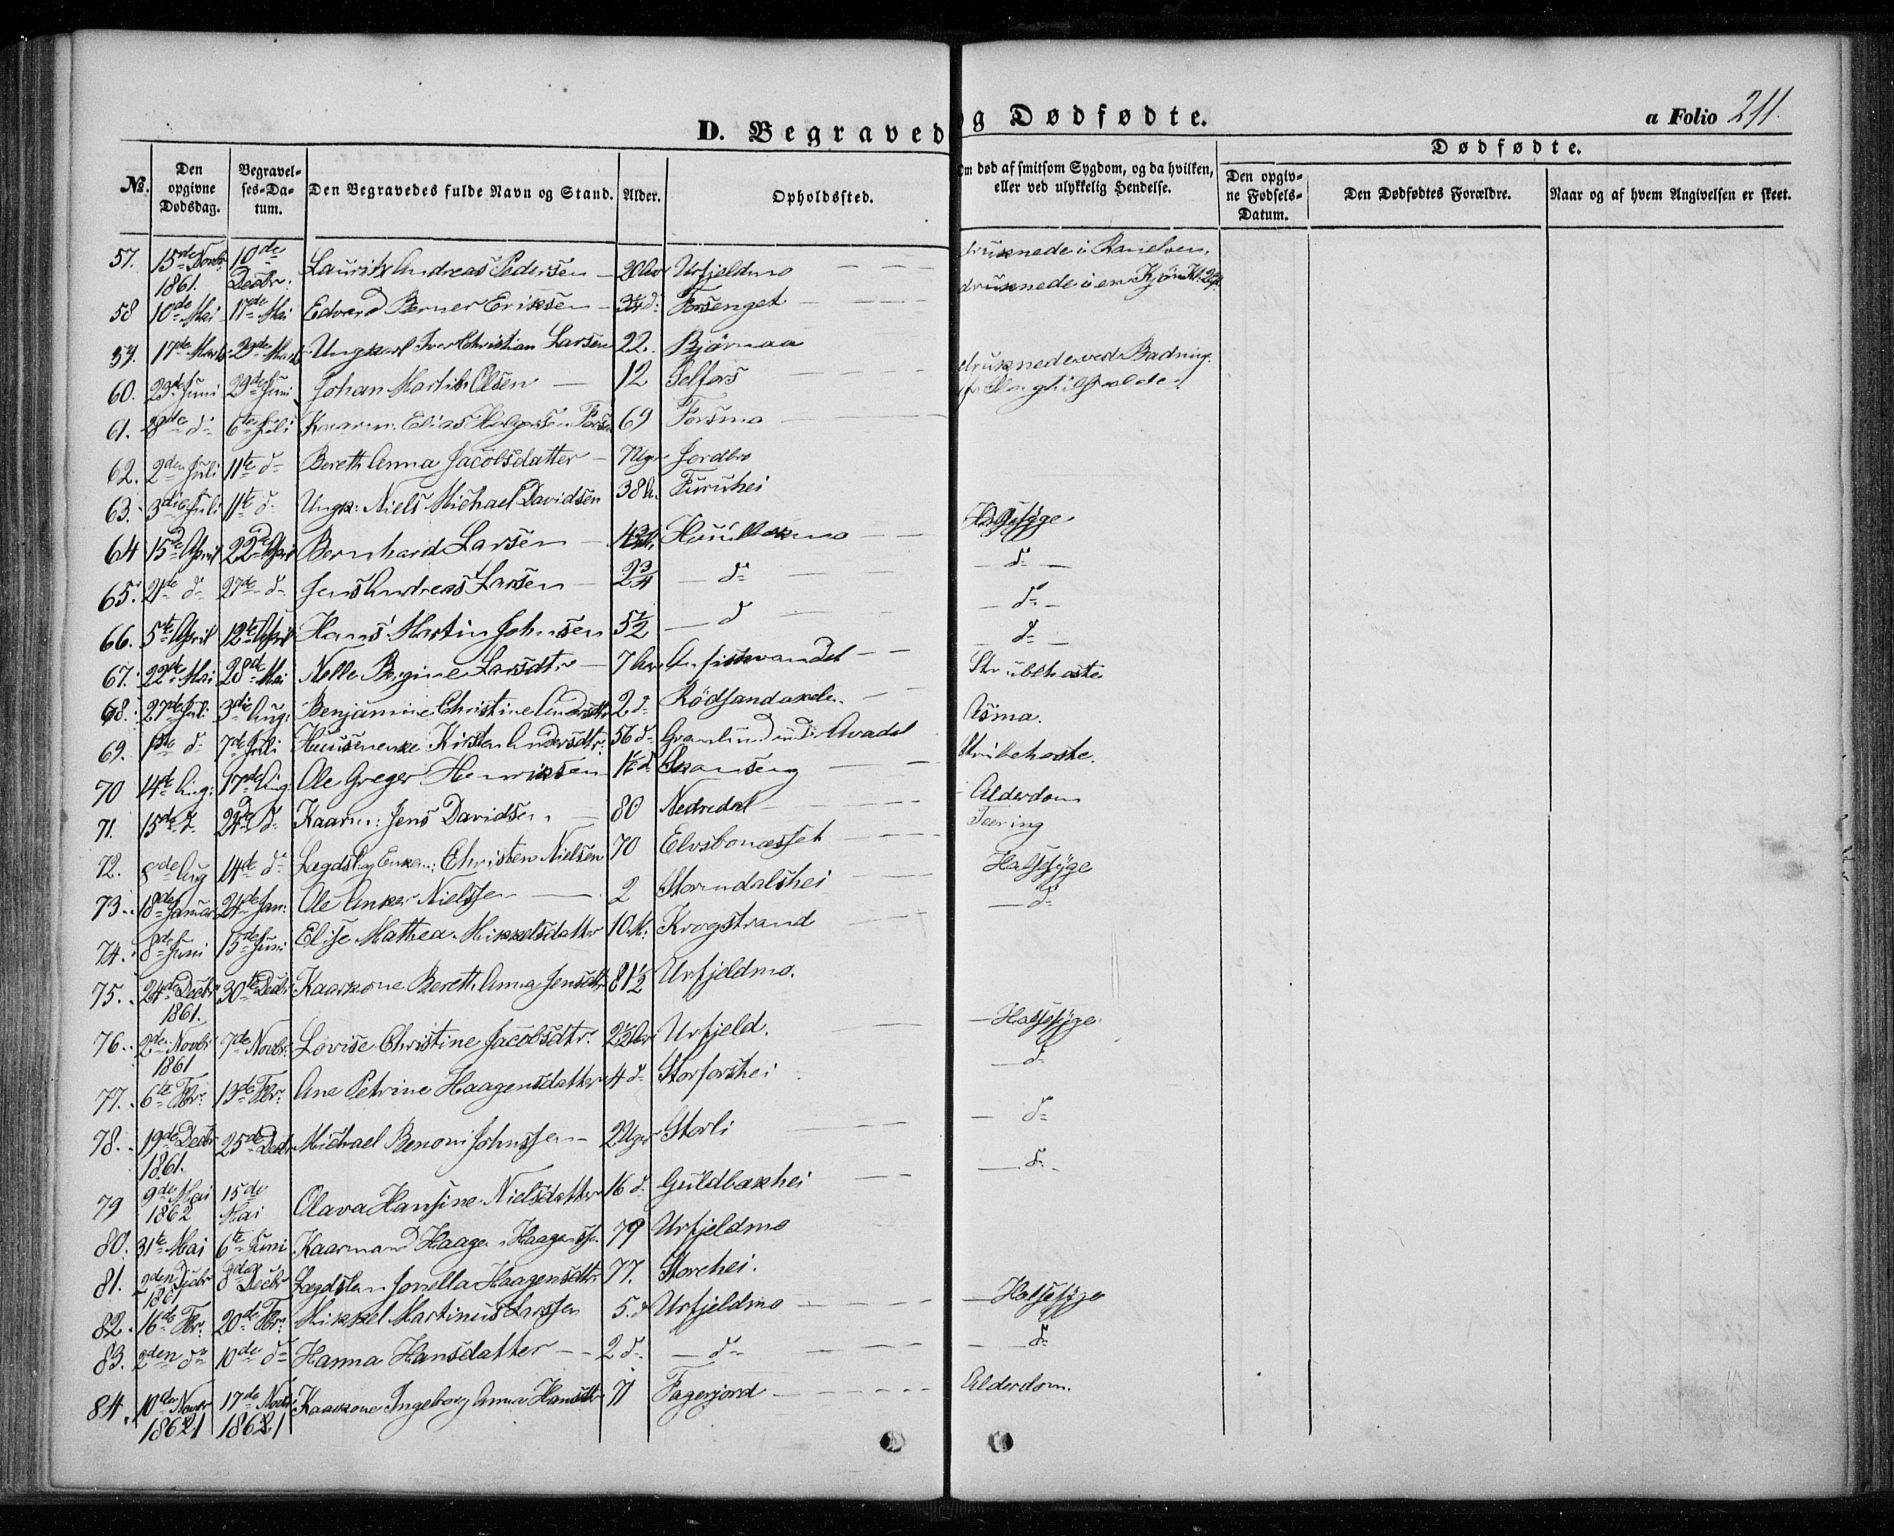 D. Begravede og Dødfødte.
a Folio 211.
No. | Den opgivne Dødsdag. | Begravelses-Datum. | Den Begravedes fulde Navn og Stand. | Alder. | Opholdssted. | Om død af smitsom Sygdom, og da hvilken, eller ved ulykkelig Hendelse. | Dødfødte. | Den opgivne Fødsels-Datum. | Den Dødfødtes Forældre. | Naar og af hvem Angivelsen er skeet.
57. 15de Novbr 1861. 10de Decbr: Lauritz Andreas Pedersen – 20 Aar Urfjeldmo – – – druknede i Ranelven.
58 10de Mai 17de Mai Edvard Berner Eriksen – 3¼ d: Forsenget – – – druknede i en
59. 17de Marts 23de Marts Ungkarl Iver Christian Larsen 22. Bjørnaa
60. 23de Juni 29de Juni Johan Martin Olsen – 12 Selfors – – – druknede ved Badning.
61. 28de d: 6te Juli Kaarm: Elias Holgersen 69 Forsmo – af Slagtilfælde
62. 2den Juli 11te d: Bereth Anna Jacobsdatter – 7 Uger Jordbro
63. 3die Juli 11te d: Ungk: Niels Michael Davidsen 38 A. Furuhei
64 15de April 22de April Bernhard Larsen – Halsesyge
65. 21de d: 27de d: Jens Andreas Larsen – 2¾ – d: – – d: –
66. 5te April 12te April Hans Martin Johnsen 5½ – d – d: –
67. 22de Mai 28de Mai Nelle Bergine Larsdtr – 7 Aar – – d: –
68. 27de Juli 3die Aug: Benjamine Christine Andersdtr 2 d: Rödsandaxelen – – Strubehoste
69. d: 7de Juli Kirsten Andersdtr: 56 d: Asma.
70 14de Aug: 17de Aug: Ole Greger Henriksen Skonseng – – Strubehoste.
71. 15de d: 24de d: Kaarm: Jens Davidsen – 80 Nedredal – – Alderdom
72. 8de Aug 14de d: Lægdslag Enkem: Christen Nielsen 70 Elvsbonæsset – – Tæring
73. 18de Januar 24de Jan: Ole Anker Nielssen – 2 Stormdalshei – – Halsesyge
74. 8de Juni 15de Juni Elise Mathea Mikkelsdatter 10 M: Krogstrand – – d:
75. 24de Decbr 1861. 30te Decbr Kaarkone Bereth Anna Jensdtr 81½ Urfjeldmo.
76. 2de Novbr 1861 7de Novbr: Lovise Christine Jacobsdtr. 2½ Aar Urfjeld. – – Halsesyge
77. 6te Fbr: 13de Fbr: Ane Petrine Haagensdatter 4 d: Storforshei – d:
78. 19de Decbr 1861. 25de Decbr Michael Benoni Johnssen – 2 Uger Storli – – d:
79 9de Mai 1862 15de Mai Olava Hansine Nielsdatter 16 d: Guldbakhei – – d:
80. 31te Mai 6te Juni Kaarmand Haagen Haagenssen 79 Urfjeldmo
81. 2den Decbr 1861 8de Decbr Lægdslem Jonella Haagensdtr. 77. Storehei.
82. 16de Fbr: 20de Fbr: Mikkel Martinus Larssen 5. d Urfjeldmo – – – Halsesyge
83. 2den d: 10de d: Hanna Hansdatter – – 2 d: – d: – – – d:
84. 10de Novbr 1861 17de Novbr 1861 Kaarkone Ingeborg Anna Hansdtr 71 Fagerjord – – – Alderdom.